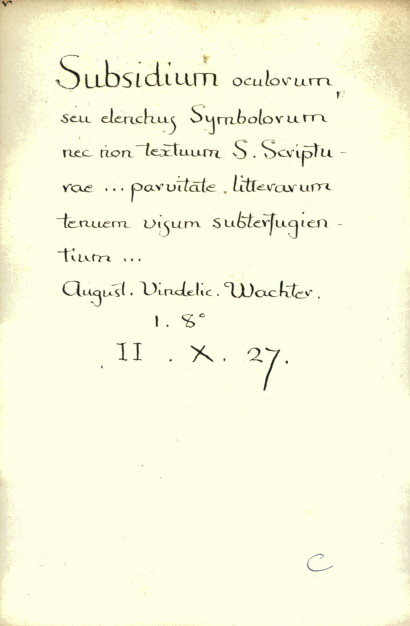 Subsidium oculorum,
seu elenchus Symbolorum
nec non textuum S. Scriptu-
rae ... parvitate litterarum
tenuem visum subterfugien-
tium ...
August. Vindelic. Wachter.
1. 8°
II . X. 27.
C